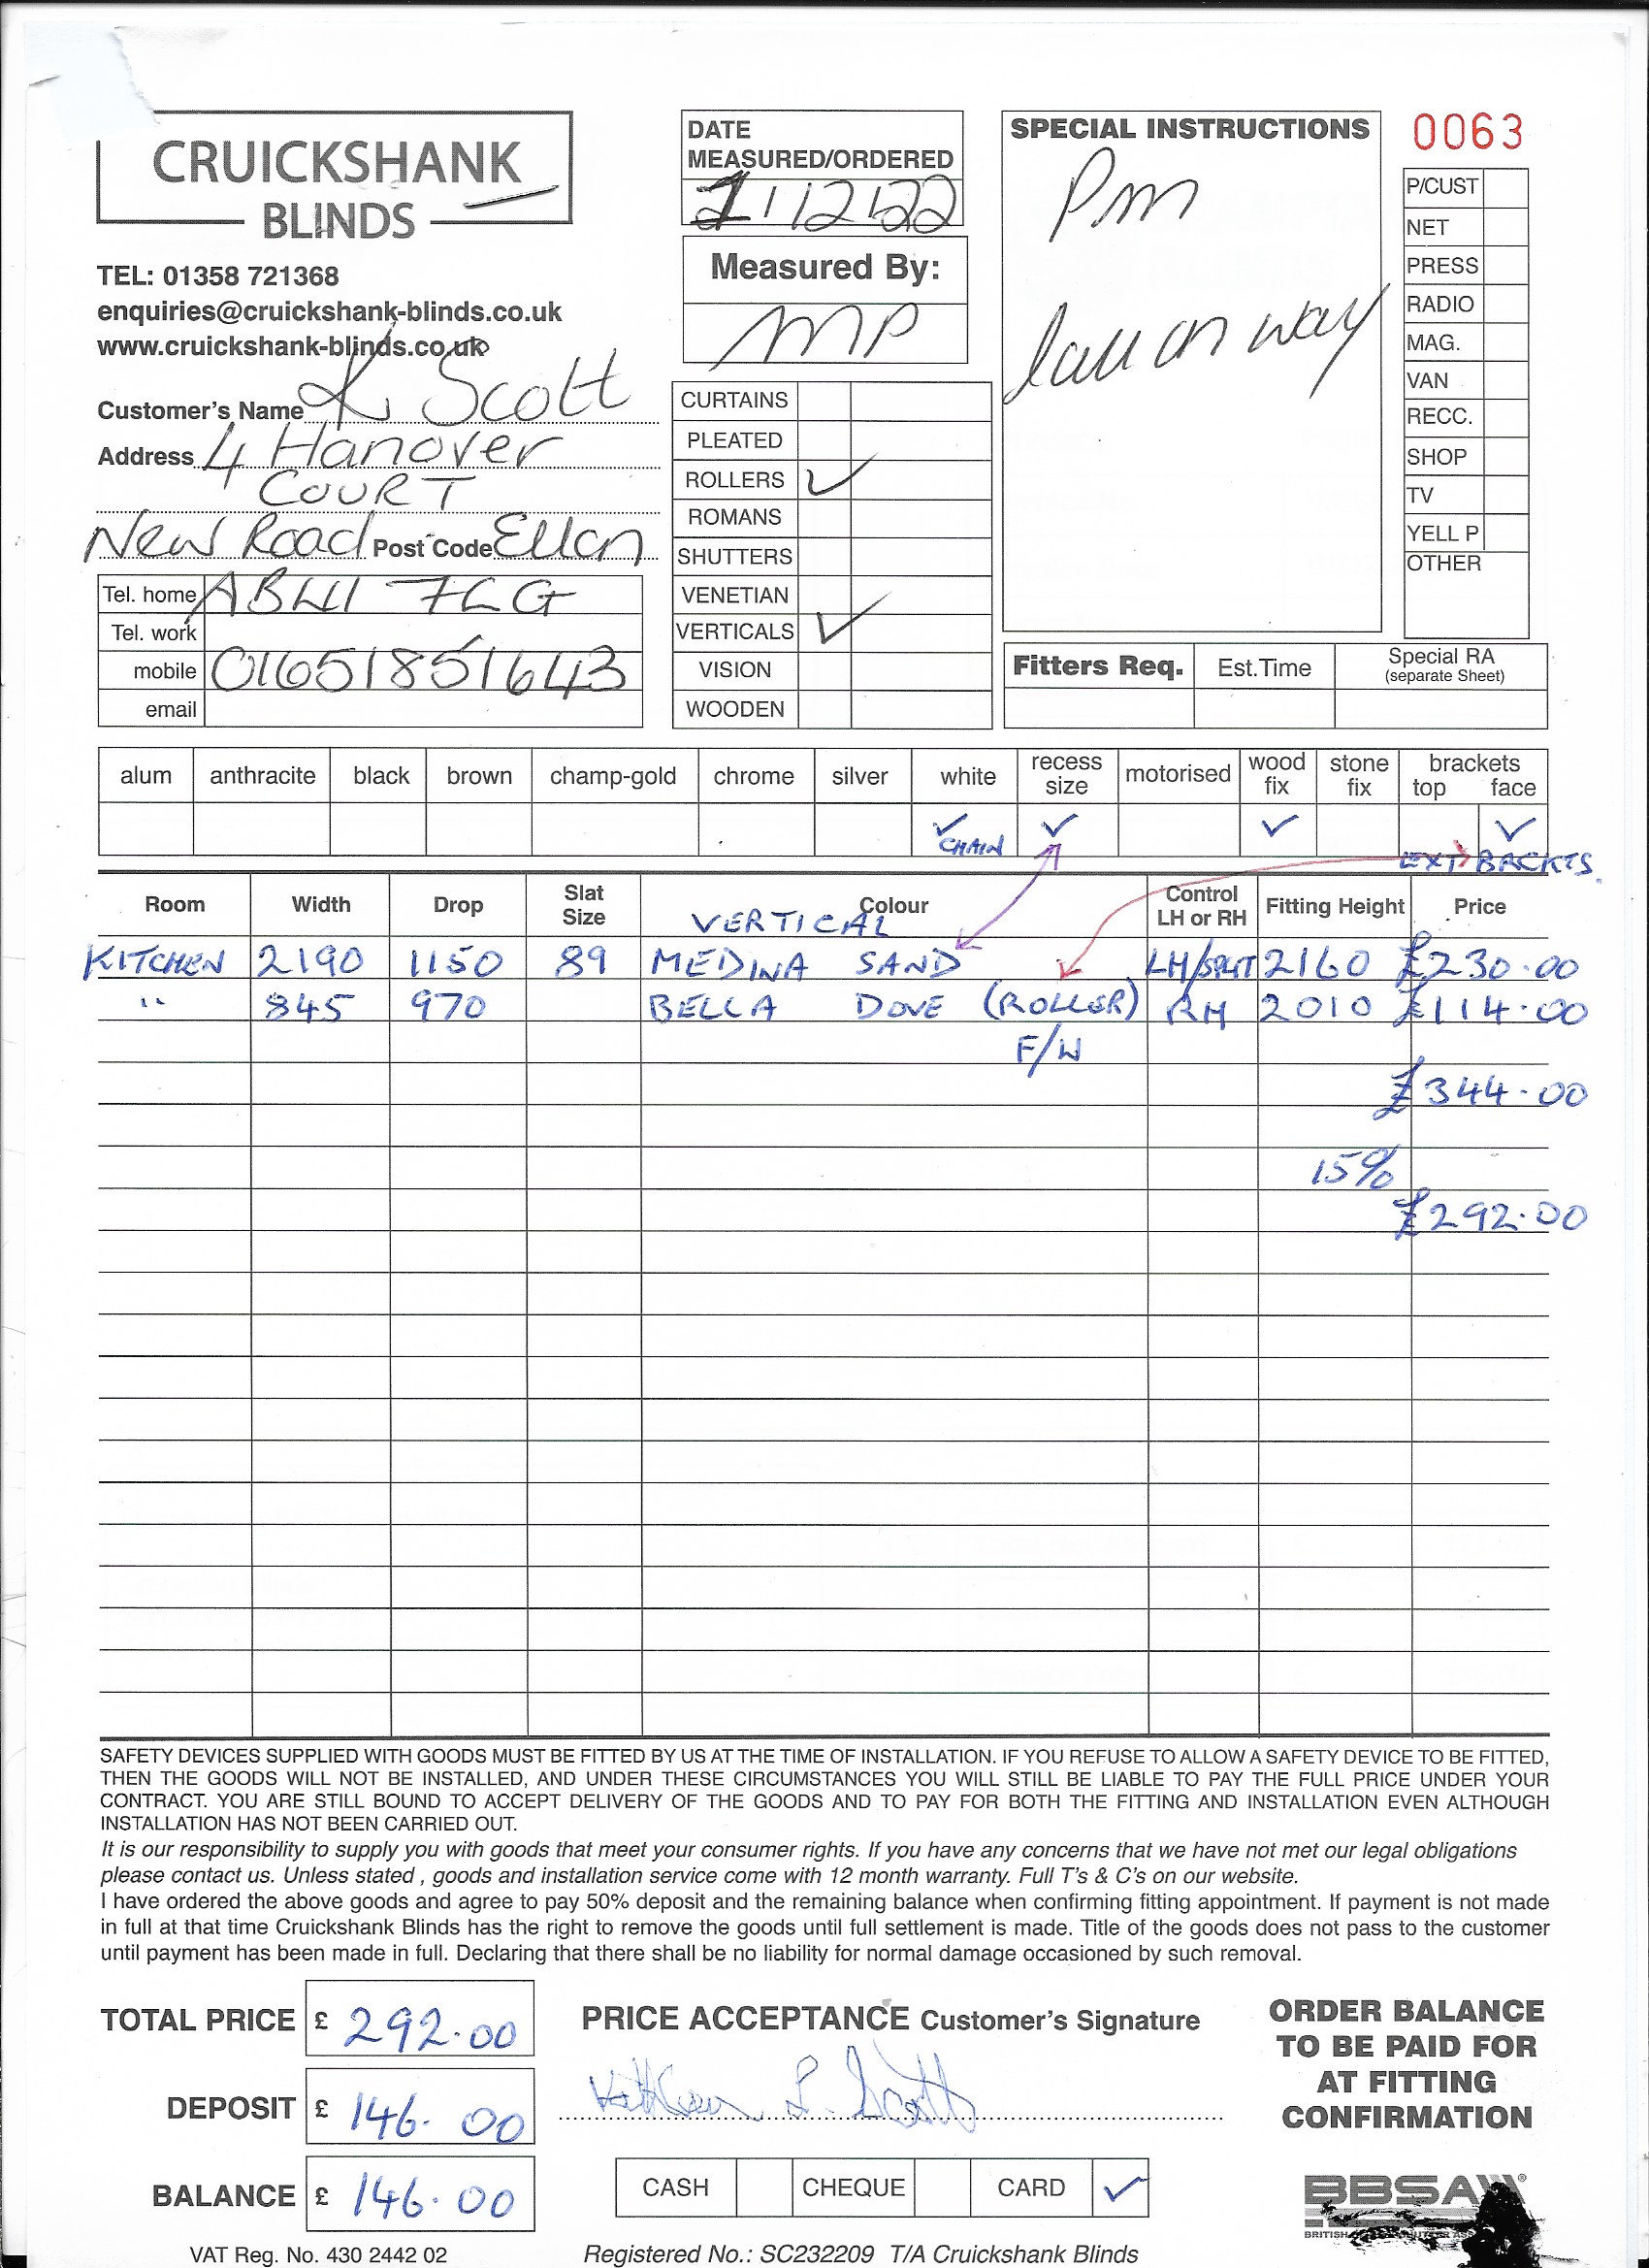 CRUICKSHANK
BLINDS
TEL: 01358 721368
enquiries@cruickshank-blinds.co.uk
www.cruickshank-blinds.co.uk
Customer's Name K Scott
Address 4 Hanover
COURT
New Road Post Code Ellon
Tel. home AB41 7LG
Tel. work
mobile 01651851643
email
DATE
MEASURED/ORDERED
/12/22
Measured By:
MP
CURTAINS
PLEATED
ROLLERS ✓
ROMANS
SHUTTERS
VENETIAN
VERTICALS ✓
VISION
WOODEN
SPECIAL INSTRUCTIONS
Pm
Call on way
0063
P/CUST
NET
PRESS
RADIO
MAG.
VAN
RECC.
SHOP
TV
YELL P
OTHER
Fitters Req. Est.Time Special RA
(separate Sheet)
alum anthracite black brown champ-gold chrome silver white recess size motorised wood fix stone fix brackets top face
✓ CHAIN ✓ ✓ ✓
EXT BRCKTS.
Room Width Drop Slat Size Colour Control LH or RH Fitting Height Price
VERTICAL
KITCHEN 2190 1150 89 MEDINA SAND LH/SPLIT 2160 £230.00
" 845 970 BELLA DOVE (ROLLER) RH 2010 £114.00
F/W
£344.00
15%
£292.00
SAFETY DEVICES SUPPLIED WITH GOODS MUST BE FITTED BY US AT THE TIME OF INSTALLATION. IF YOU REFUSE TO ALLOW A SAFETY DEVICE TO BE FITTED,
THEN THE GOODS WILL NOT BE INSTALLED, AND UNDER THESE CIRCUMSTANCES YOU WILL STILL BE LIABLE TO PAY THE FULL PRICE UNDER YOUR
CONTRACT. YOU ARE STILL BOUND TO ACCEPT DELIVERY OF THE GOODS AND TO PAY FOR BOTH THE FITTING AND INSTALLATION EVEN ALTHOUGH
INSTALLATION HAS NOT BEEN CARRIED OUT.
It is our responsibility to supply you with goods that meet your consumer rights. If you have any concerns that we have not met our legal obligations
please contact us. Unless stated , goods and installation service come with 12 month warranty. Full T's & C's on our website.
I have ordered the above goods and agree to pay 50% deposit and the remaining balance when confirming fitting appointment. If payment is not made
in full at that time Cruickshank Blinds has the right to remove the goods until full settlement is made. Title of the goods does not pass to the customer
until payment has been made in full. Declaring that there shall be no liability for normal damage occasioned by such removal.
TOTAL PRICE £ 292.00
DEPOSIT £ 146.00
BALANCE £ 146.00
PRICE ACCEPTANCE Customer's Signature
Kathleen L Scott
CASH CHEQUE CARD ✓
ORDER BALANCE
TO BE PAID FOR
AT FITTING
CONFIRMATION
BBSA
BRITISH
VAT Reg. No. 430 2442 02
Registered No.: SC232209 T/A Cruickshank Blinds